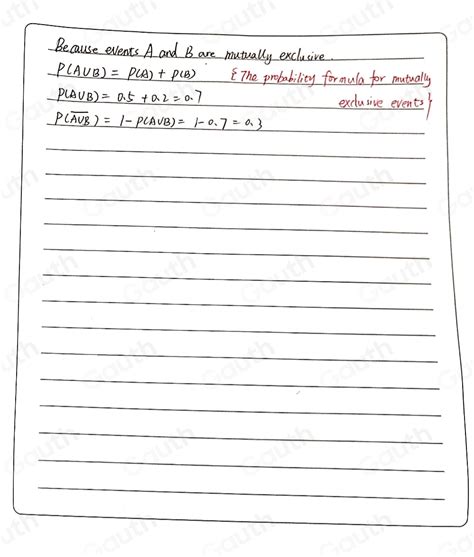 Because events A and B are mutually exclusive.
P(A∪B) = P(A) + P(B) {The probability formula for mutually
P(A∪B) = 0.5 + 0.2 = 0.7 exclusive events}
P(A∪B̅) = 1 - P(A∪B) = 1 - 0.7 = 0.3
Gauth